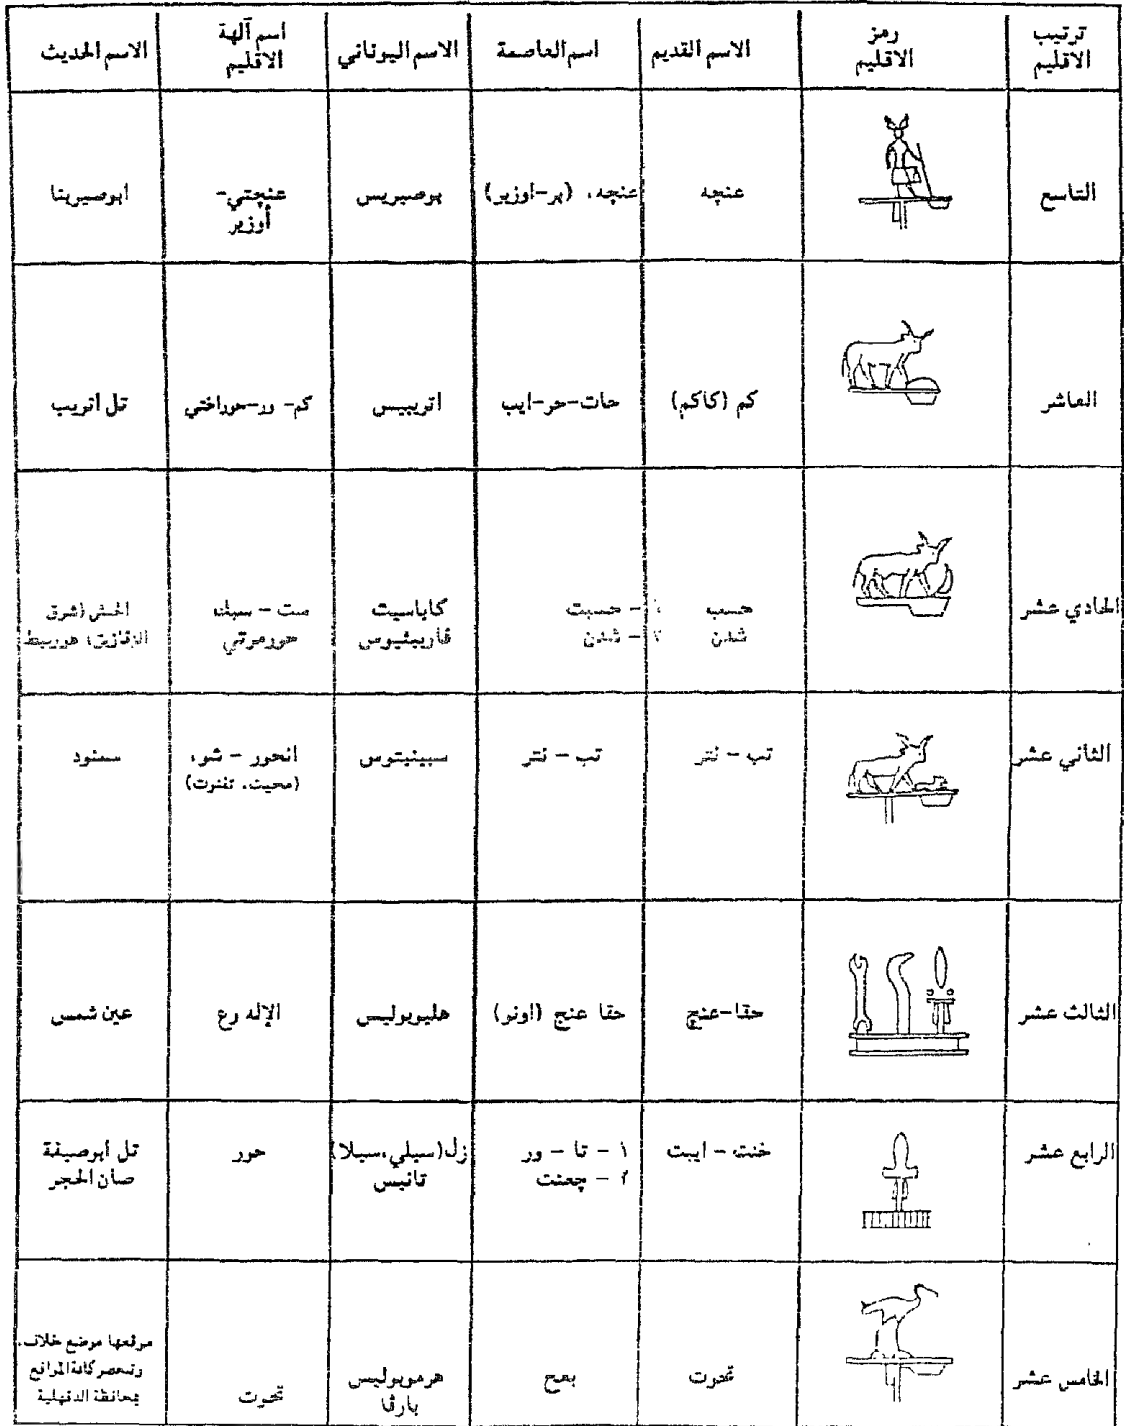 ترتيب الاقليم
رمز الاقليم
الاسم القديم
اسم العاصمة
الاسم اليوناني
اسم آلهة الاقليم
الاسم الحديث
التاسع
عنچه
عنچه، (پر-اوزير)
بوصيريس
عنچتي-
أوزير
ابوصيربنا
العاشر
كم (كاكم)
حات-حر-ايب
اتريبيس
كم- ور-حوراختي
تل اتريب
الحادي عشر
حسب
شدن
١ - حسبت
٢ - شدن
كاباسيت
فاربيثيوس
ست - سبك
حورمرتي
(شرق
الزقازيق) هوربيط
الثاني عشر
تب - نتر
تب - نتر
سبينيتوس
انحور - شو،
(محيت، تفنرت)
سمنود
الثالث عشر
حقا-عنج
حقا عنج (اونو)
هليوبوليس
الإله رع
عين شمس
الرابع عشر
خنت - ايبت
١ - تا - ور
٢ - چعنت
زل(سيلي،سيلا)
تانيس
حور
تل ابوصيفة
صان الحجر
الخامس عشر
تحوت
بعح
هرموبوليس
بارڤا
تحوت
موقعها موضع خلاف،
وتنحصر كافة المواقع
بمحافظة الدقهلية